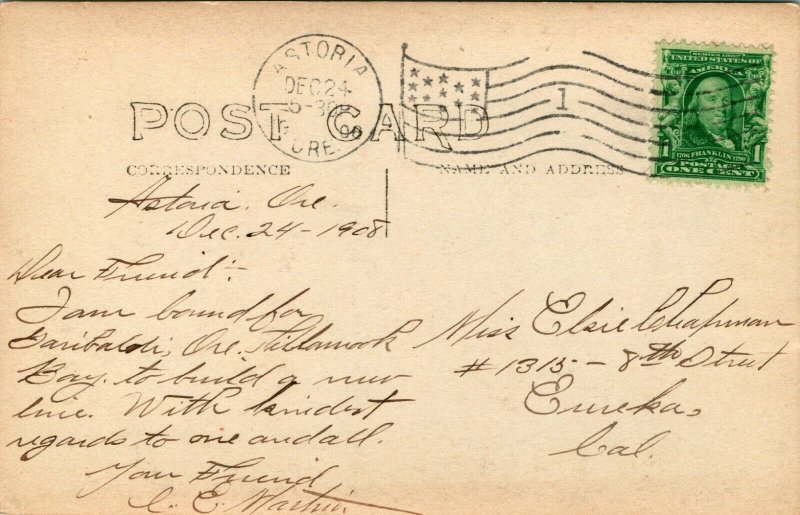 ASTORIA
DEC 24
5-30P
ORE.
1
SERIES 1902
UNITED STATES OF
AMERICA
1706 FRANKLIN 1790
POSTAGE
1 ONE CENT 1
POST CARD
CORRESPONDENCE
NAME AND ADDRESS
Astoria, Ore.
Dec. 24-1908
Dear Friend:-
I am bound for
Garibaldi, Ore. Tillamook
Bay. to build a new
line. With kindest
regards to one and all.
Your Friend
C. E. Martin
Miss Elsie Chapman
#1315-8th Street
Eureka,
Cal.